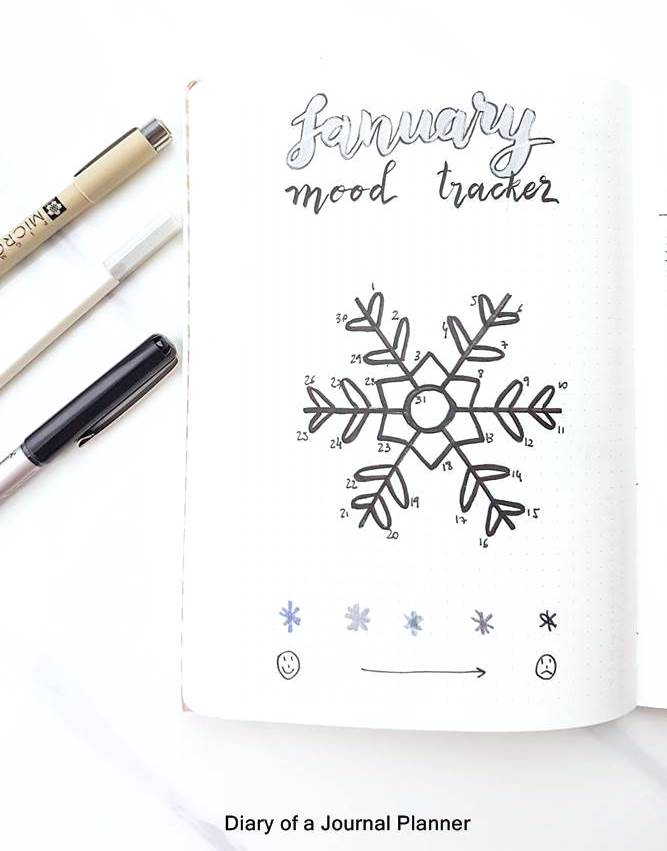 January
mood tracker
1 5
30 2 4 6
29 3 7
28 8
26 27 9 10
31
25 24 12 11
23 18 13
22 14
21 19 17 15
20 16
MICRO
Diary of a Journal Planner